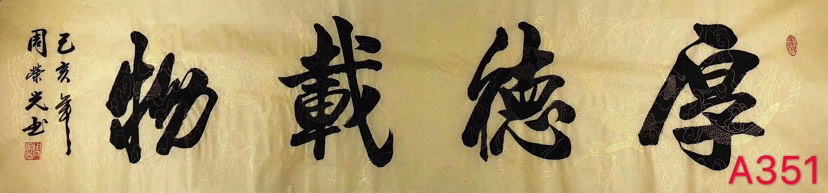 厚德載物
己亥年
周榮光书
A351